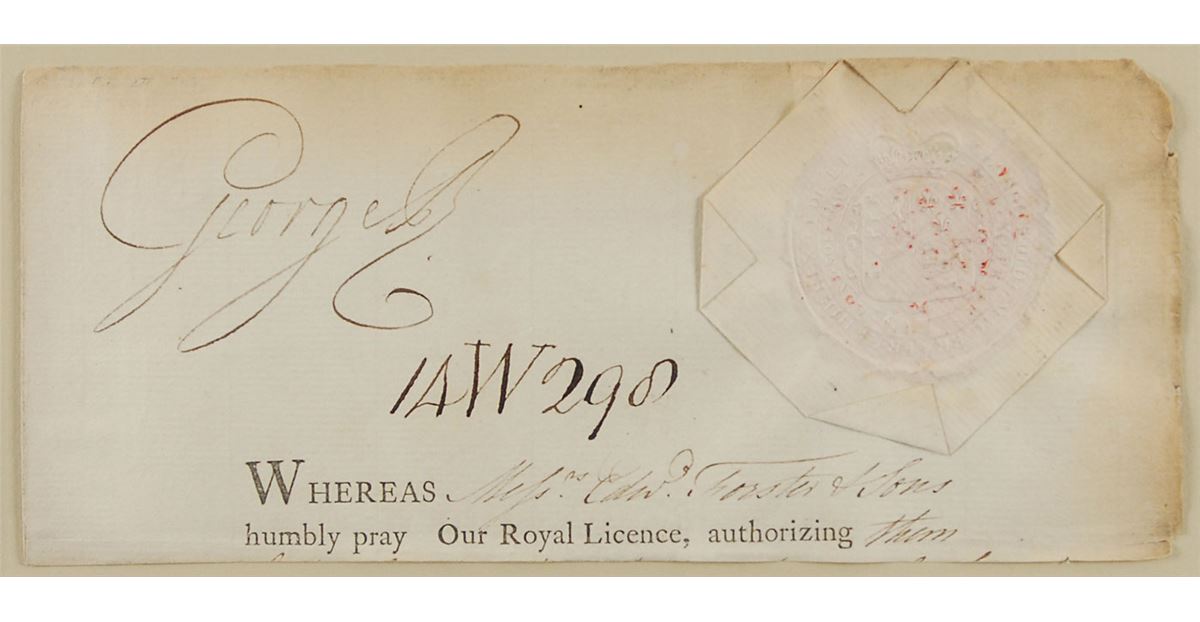 George R
14W298
WHEREAS Messrs. Edwd. Forster & Sons
humbly pray Our Royal Licence, authorizing them